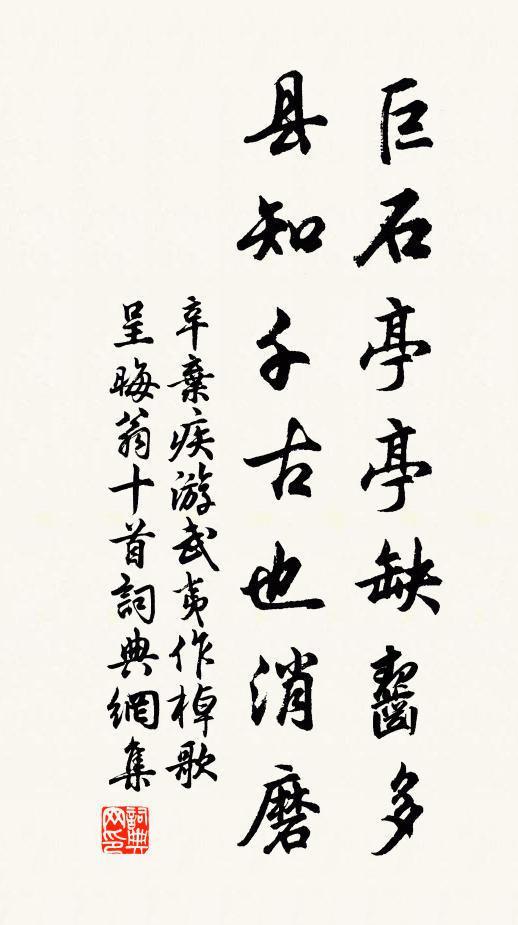 巨石亭亭缺齧多
县知千古也消磨
辛棄疾游武夷作棹歌
呈晦翁十首詞典網集
詞典網印